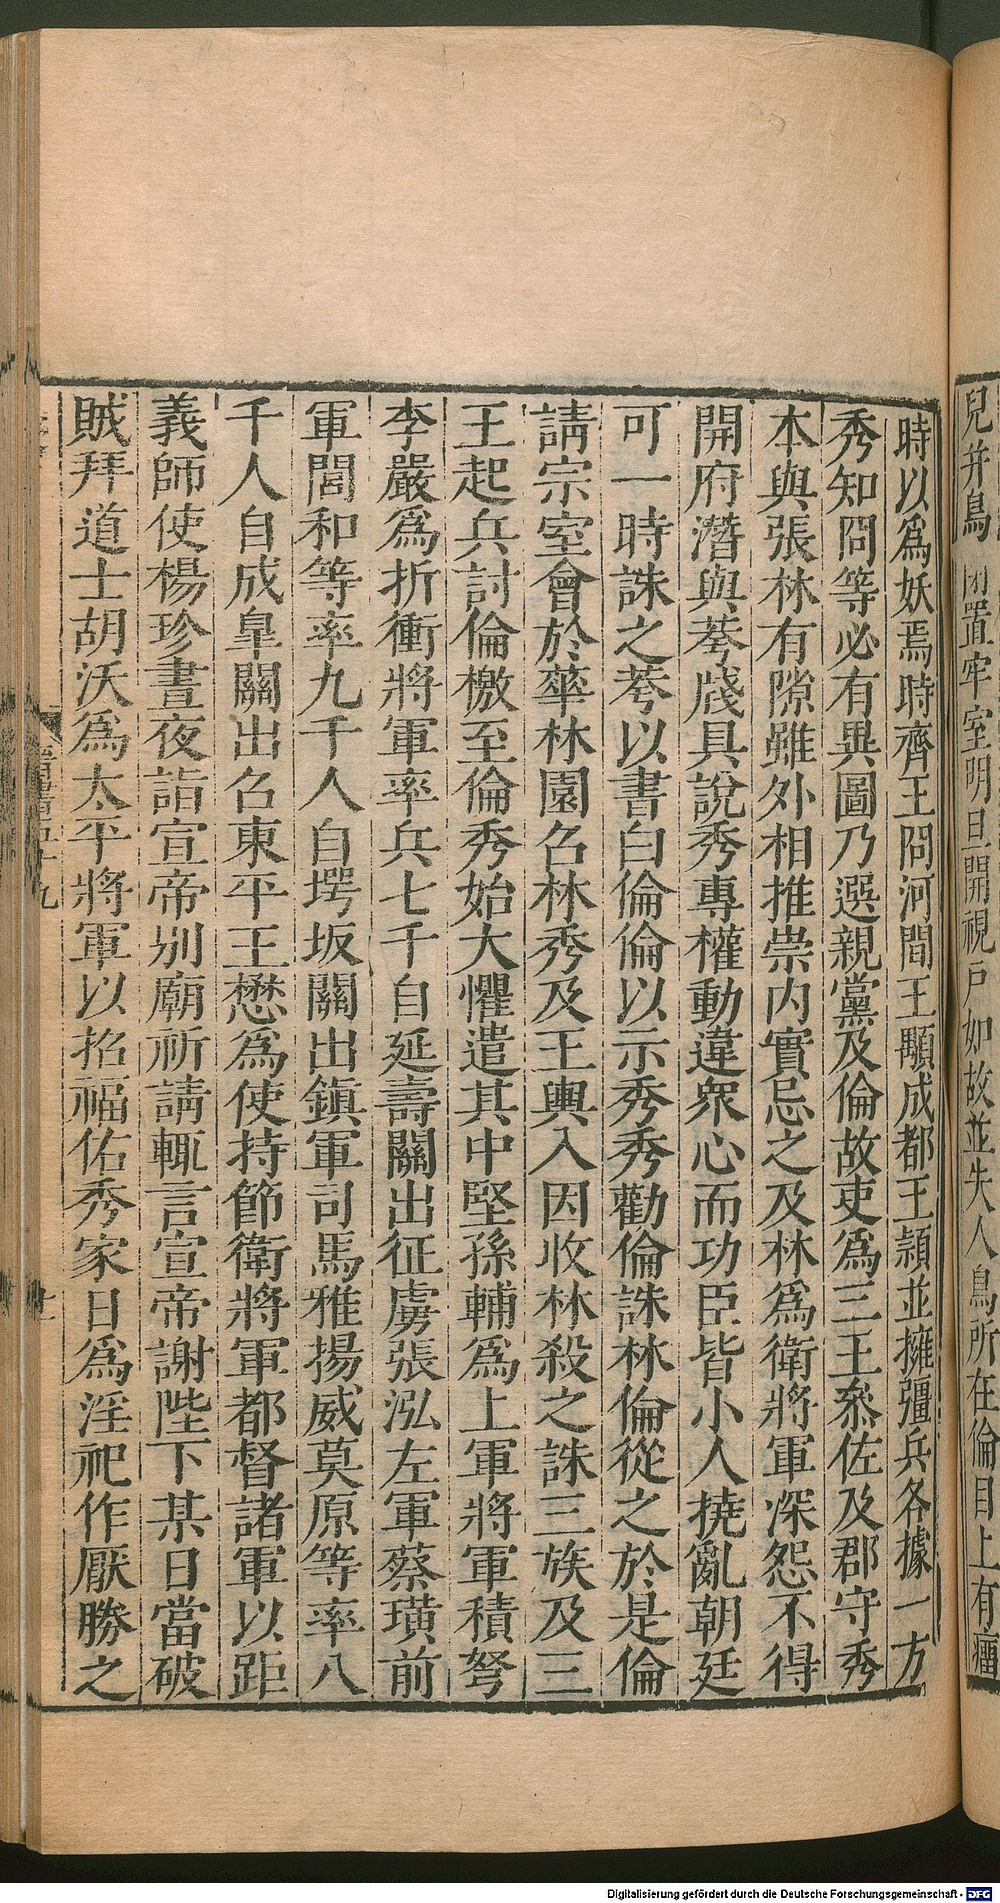 兒并鳥閉置牢室明旦開視戶如故並失人鳥所在倫目上有瘤
時以爲妖焉時齊王冏河間王顒成都王穎並擁彊兵各據一方
秀知冏等必有異圖乃選親黨及倫故吏爲三王叅佐及郡守秀
本與張林有隙雖外相推崇内實忌之及林爲衛將軍深怨不得
開府潛與荂牋具說秀專權動違衆心而功臣皆小人撓亂朝廷
可一時誅之荂以書白倫倫以示秀秀勸倫誅林倫從之於是倫
請宗室會於華林園召林秀及王輿入因收林殺之誅三族及三
王起兵討倫檄至倫秀始大懼遣其中堅孫輔爲上軍將軍積弩
李嚴爲折衝將軍率兵七千自延壽關出征虜張泓左軍蔡璜前
軍閭和等率九千人自堮坂關出鎮軍司馬雅揚威莫原等率八
千人自成臯關出召東平王懋爲使持節衛將軍都督諸軍以距
義師使楊珍晝夜詣宣帝别廟祈請輒言宣帝謝陛下某日當破
賊拜道士胡沃爲太平將軍以招福佑秀家日爲淫祀作厭勝之
Digitalisierung gefördert durch die Deutsche Forschungsgemeinschaft - DFG